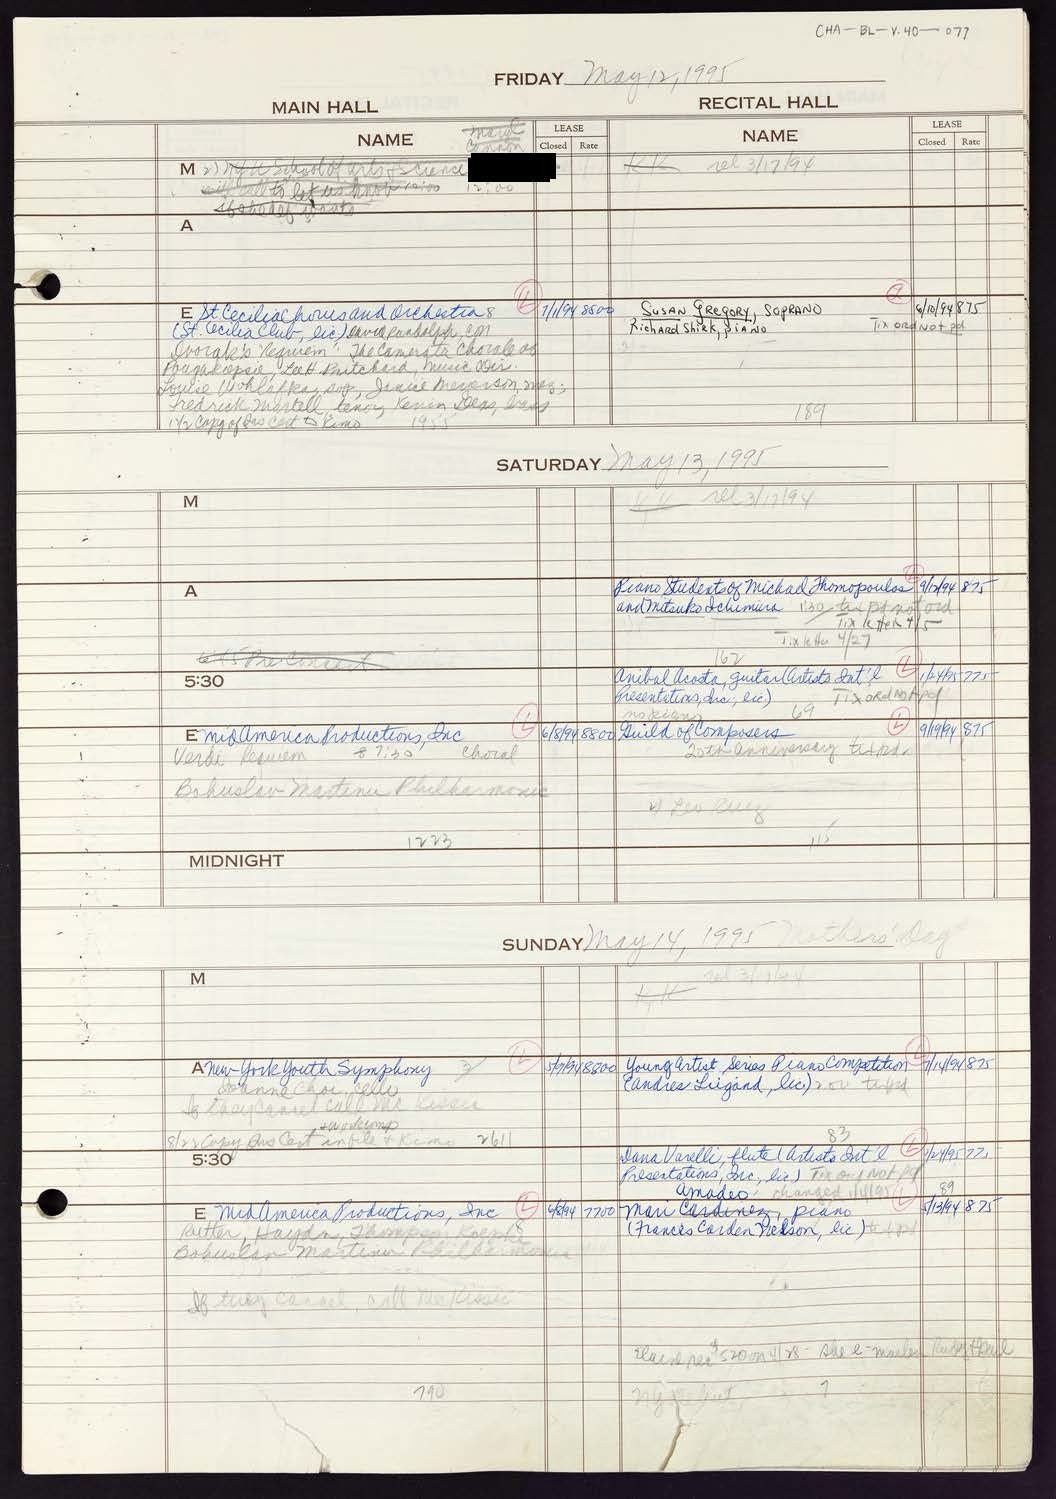 CHA-BL-V.40-077
FRIDAY May 12, 1995
MAIN HALL
RECITAL HALL
NAME
LEASE
Closed Rate
NAME
LEASE
Closed Rate
M School of arts & Science
to let us know 12:00
K.K. rel 3/17/94
A
E St Cecilia Chorus and Orchestra 8 L 7/1/94 8800
(St. Cecilia Club, lic) David Randolph, con
Dvorak's Requiem. The Camerata Chorale of
Poughkeepsie, Lee H Pritchard, Music Dir.
Louise Wohlafka, sop, Janice Meyerson, mez;
Fredrick Martell, tenor, Kevin Deas, bass
1/2 Copy of Ins Cert to Kimo 1955
SUSAN GREGORY, SOPRANO 6/10/94 875
Richard Shirk, piano Tix ord Not pd
189
SATURDAY May 13, 1995
M
rel 3/17/94
A
Piano Students of Michael Thomopoulos L 9/12/94 875
and Mitsuko Ichimura 1:30 tix pd not ord
Tix letter 4/5
Tix letter 4/27
162
6:45 Pre Concert
5:30
Anibal Acosta, guitar (Artists Int'l L 1/24/95 775
Presentations, Inc., lic) Tix ord Not pd
no piano 69
E MidAmerica Productions, Inc L 6/8/94 8800
Verdi Requiem 7:30 Choral
Bohuslav Martinu Philharmonic
1223
Guild of Composers L 9/19/94 875
20th anniversary tix pd
115
MIDNIGHT
SUNDAY May 14, 1995 Mothers' Day
M
K.K. rel 3/17/94
A New York Youth Symphony L 5/9/94 8800
Joanne Choi, Cello
If they cancel call
8/22 Copy Ins Cert in file & Kimo 2611
Young Artist Series Piano Competition L 7/14/94 875
tix pd
83
5:30
Dana Varelli, flute (Artists Int'l L 1/24/95 775
Presentations, Inc, lic) Tix ord Not pd
Amadeo changed 1/4/95 89
E MidAmerica Productions, Inc L 6/8/94 7700
Rutter, Haydn, Thompson
Bohuslav Martinu Philharmonic
If they cancel, call
790
Mari Cardinez, piano L 5/13/94 875
(Frances Carden Nelson, lic) tix pd
rec $520 on 4/28 - she e-mailed
NY debut